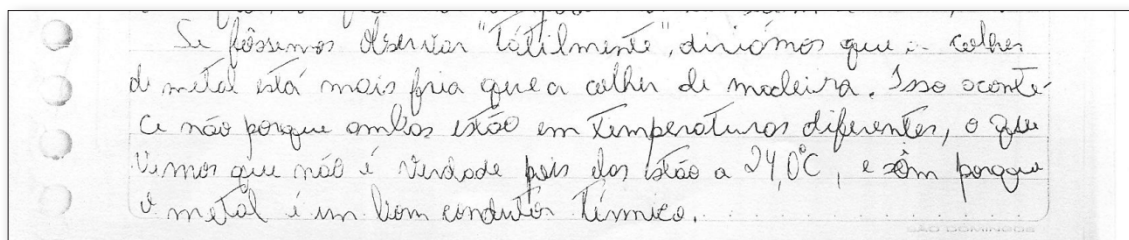 Se fôssemos observar "tátilmente", diríamos que a colher
de metal está mais fria que a colher de madeira. Isso aconte-
ce não porque ambas estão em temperaturas diferentes, o que
vimos que não é verdade pois elas estão a 24,0°C, e sim porque
o metal é um bom condutor térmico.
SÃO DOMINGOS